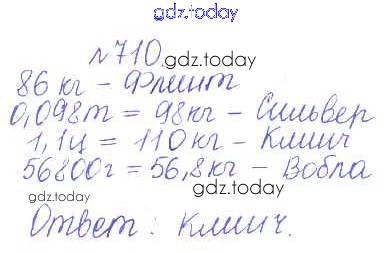 gdz.today
№710.gdz.today
86 кг - Флинт
0,098т = 98кг - Сильвер
1,1ц = 110кг - Клинч
56800г = 56,8кг - Вобла
gdz.today gdz.today
Ответ: Клинч.
gdz.today